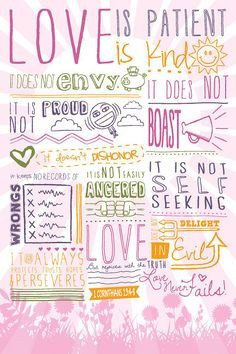 LOVE IS PATIENT
is Kind
IT DOES NOT envy
IT DOES NOT
BOAST
IT IS NOT PROUD
it doesn't DISHONOR
IT KEEPS NO RECORDS OF
WRONGS
IT IS NOT EASILY
ANGERED
IT IS NOT
SELF
SEEKING
LOVE
DOES NOT
DELIGHT
IN Evil
But rejoices with the TRUTH
IT ALWAYS
PROTECTS, TRUSTS, HOPES
& PERSEVERES
Love
Never Fails!
1 CORINTHIANS 13:4-8